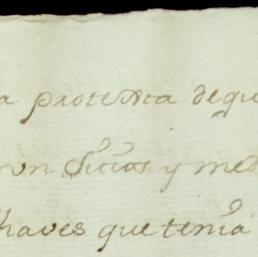 a protexta de qu
un Sitios y med
haves que tenia